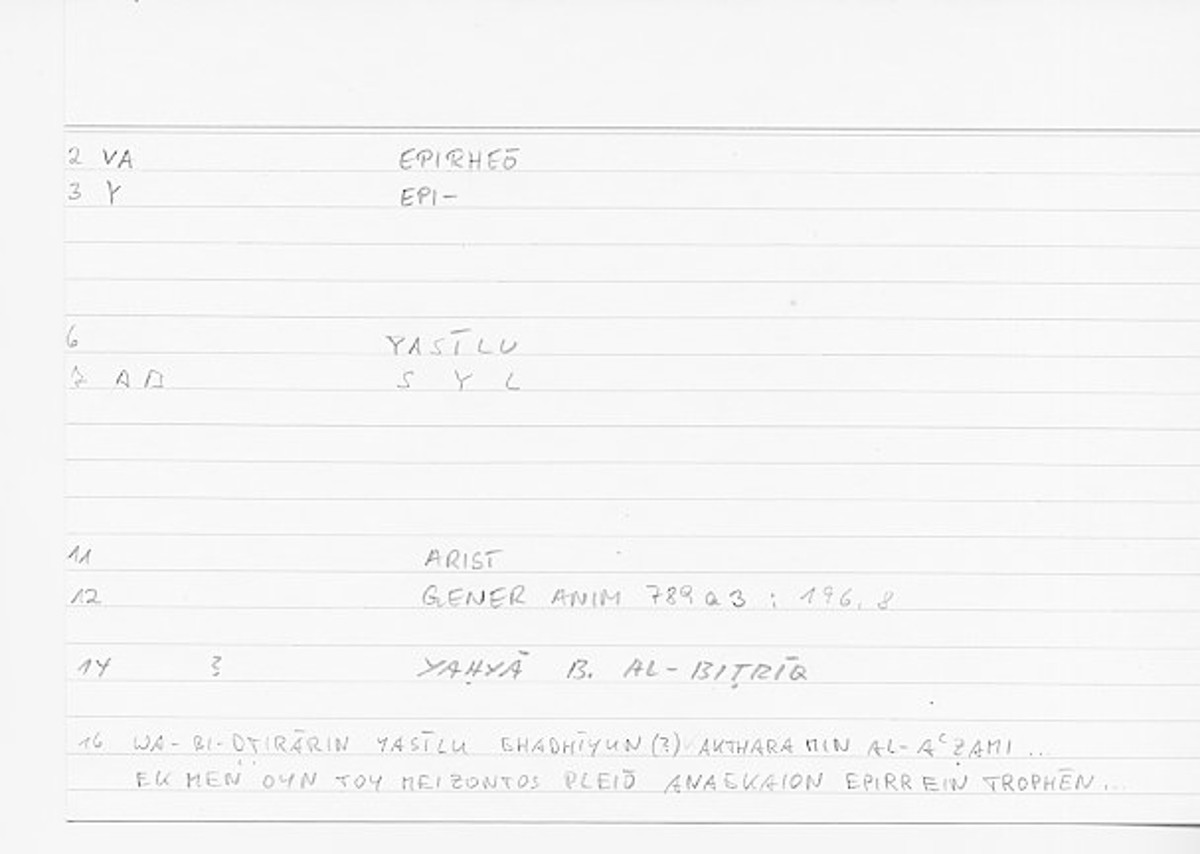 2 VA EPIRHEŌ
3 Y EPI-
6 YASĪLU
7 AA S Y L
11 ARIST
12 GENER ANIM 789 a 3 : 196, 8
14 ? YAḤYĀ B. AL-BIṬRĪQ
16 WA-BI-ḌṬIRĀRIN YASĪLU GHADHĪYUN (?) AKTHARA MIN AL-AʿẒAMI ...
EK MEN OYN TOY MEIZONTOS PLEIŌ ANAGKAION EPIRREIN TROPHĒN...